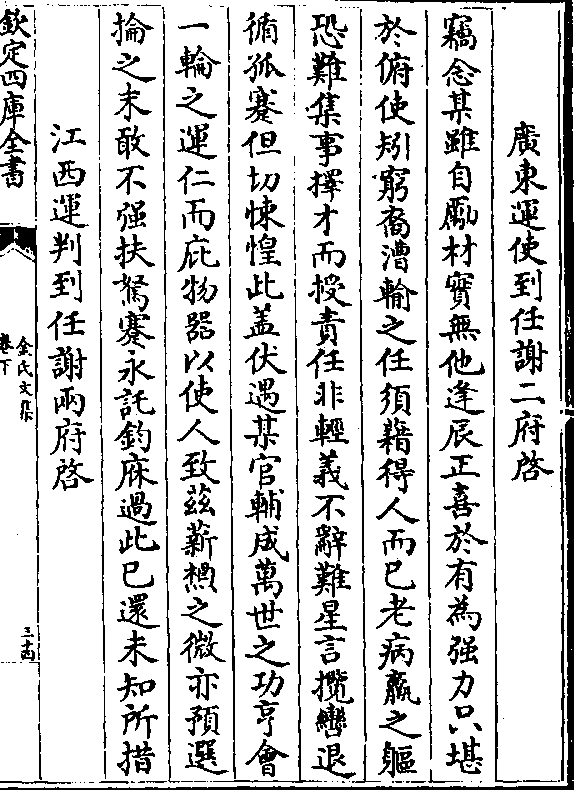 廣東運使到任謝二府啓
竊念某雖自勵材實無他逢辰正喜於有為强力只堪
於俯使矧窮裔漕輸之任須藉得人而已老病羸之軀
恐難集事擇才而授責任非輕義不辭難星言攬轡退
循孤蹇但切悚惶此盖伏遇某官輔成萬世之功亨會
一輪之運仁而庇物器以使人致茲薪槱之微亦預選
掄之末敢不强扶駑蹇永託鈞庥過此已還未知所措
江西運判到任謝兩府啓
欽定四庫全書
金氏文集
卷下
三十四